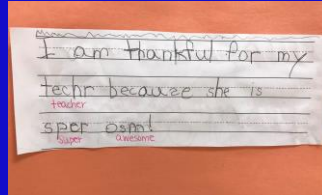 I am thankful for my
techr becauze she is
teacher
sper osm!
super awesome